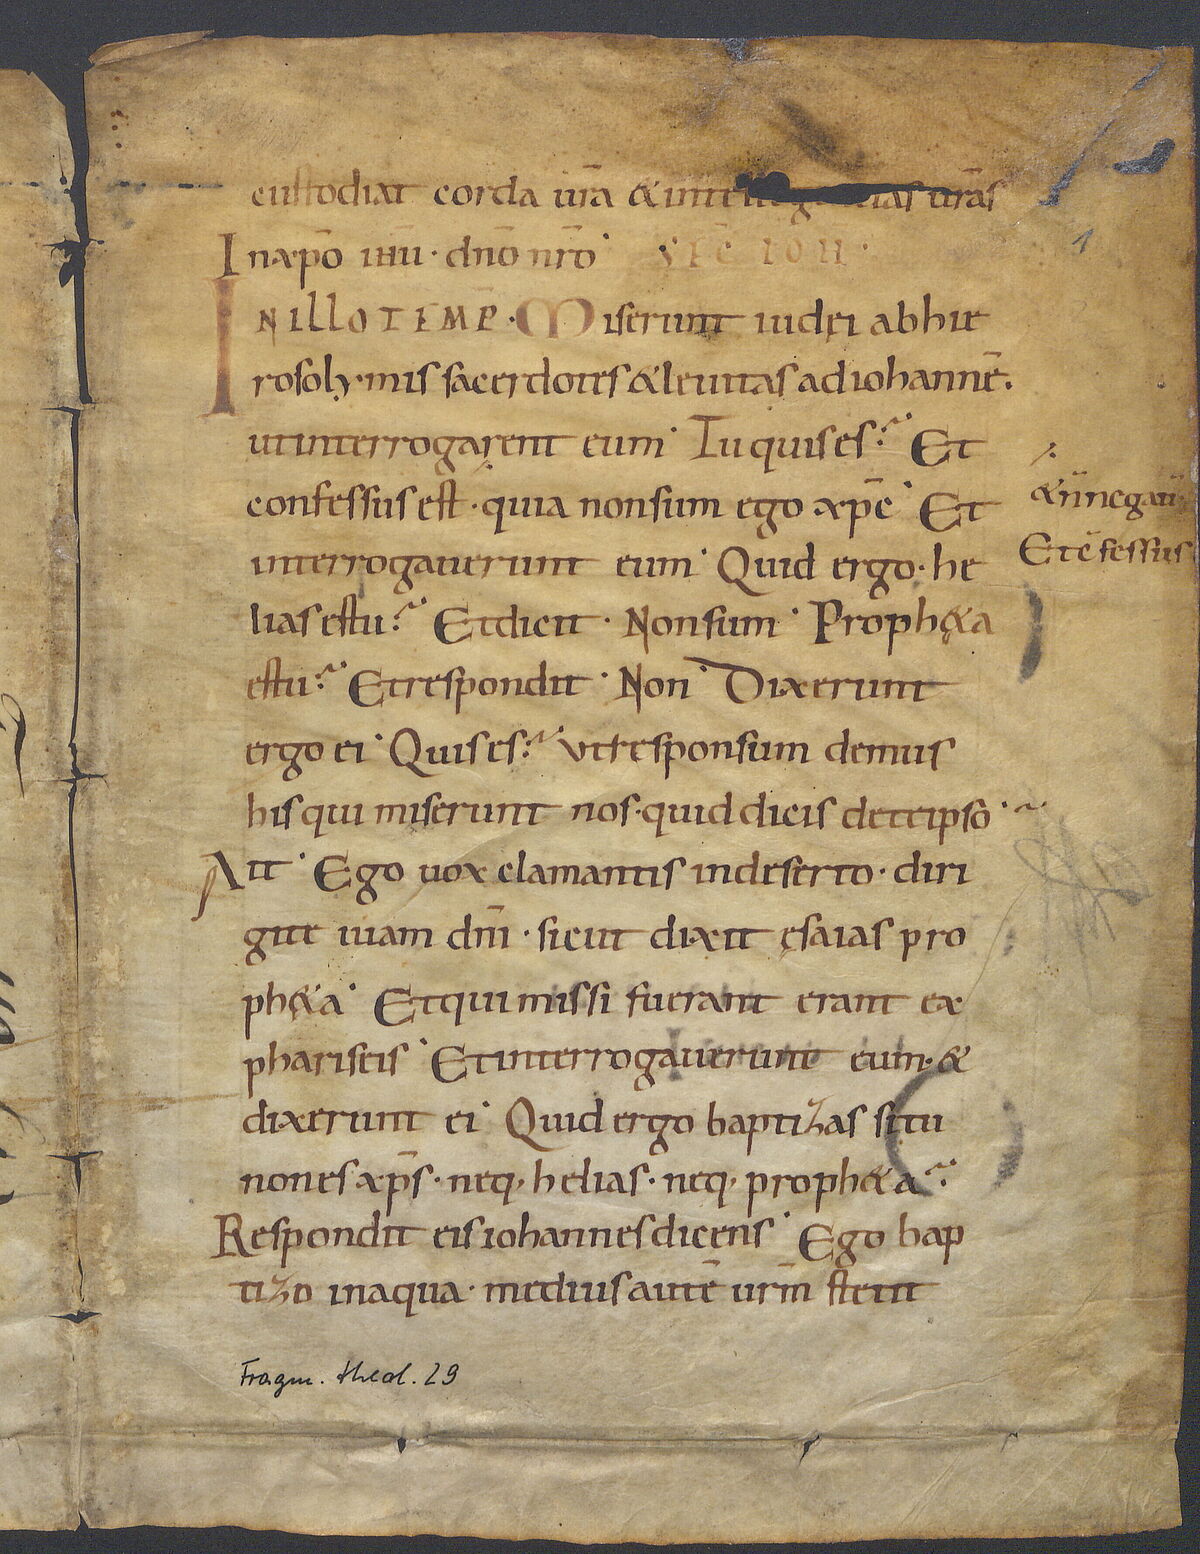 custodiat corda ur̄a & intellegentias ur̄as
In xp̄o ihū · dn̄o nr̄o · SEC IOH̄ ·
IN ILLO TEMP̄ · Miserunt iudei ab hie
rosolymis sacerdotes & leuitas ad iohannē.
ut interrogarent eum · Tu quis es? Et
&n̄ negauit
confessus est · quia non sum ego xp̄c · Et
Et c̄fessus
interrogauerunt eum · Quid ergo · he
lias es tu? Et dicit · Non sum · Proph&a
es tu? Et respondit · Non · Dixerunt
ergo ei · Quis es? ut responsum demus
his qui miserunt nos · quid dicis de te ipso?
Ait · Ego uox clamantis in deserto · diri
gite uiam dn̄i · sicut dixit ęsaias pro
ph&a · Et qui missi fuerant erant ex
phariseis · Et interrogauerunt eum · &
dixerunt ei · Quid ergo baptizas si tu
non es xp̄s · neq; helias · neq; proph&a?
Respondit eis iohannes dicens · Ego bap
tizo in aqua · medius autē ur̄m stetit
Fragm. theol. 29
1